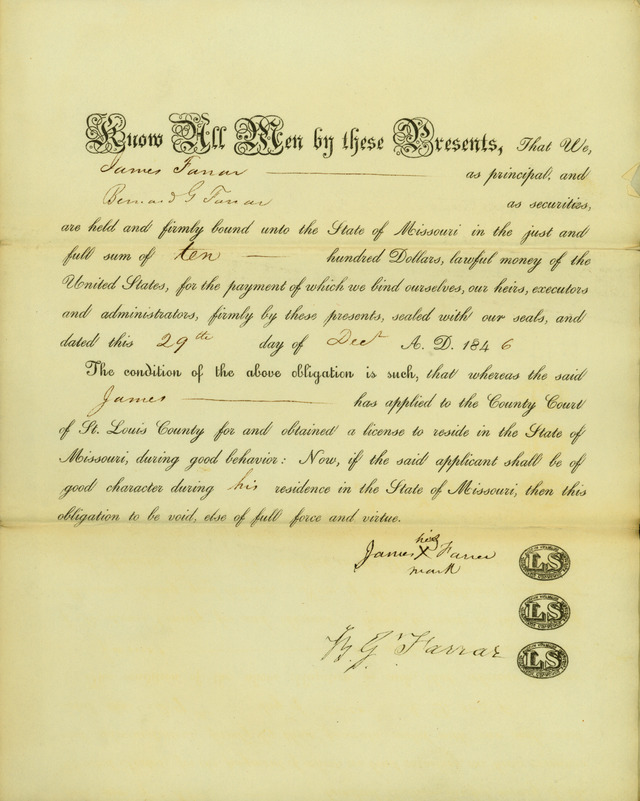 Know All Men by these Presents, That We,
James Farrar as principal, and
Bernard G Farrar as securities,
are held and firmly bound unto the State of Missouri in the just and
full sum of ten hundred Dollars, lawful money of the
United States, for the payment of which we bind ourselves, our heirs, executors
and administrators, firmly by these presents, sealed with our seals, and
dated this 29th day of Dect A. D. 1846
The condition of the above obligation is such, that whereas the said
James has applied to the County Court
of St. Louis County for and obtained a license to reside in the State of
Missouri, during good behavior: Now, if the said applicant shall be of
good character during his residence in the State of Missouri, then this
obligation to be void, else of full force and virtue.
his
James X Farrer
mark
LS
LS
B. G. Farrar
LS